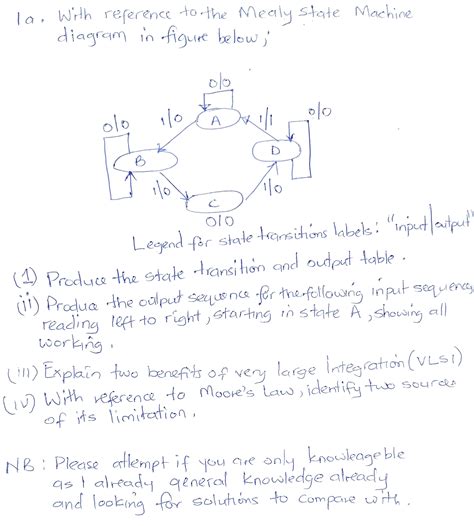 1a. With reference to the Mealy State Machine
diagram in figure below;
0/0
1/0
A
1/1
0/0
0/0
B
D
1/0
C
1/0
0/0
Legend for state transitions labels: "input/output"
(1) Produce the state transition and output table.
(ii) Produce the output sequence for the following input sequency
reading left to right, starting in state A, showing all
working.
(iii) Explain two benefits of very large Integration (VLSI)
(iv) With reference to Moore's Law, identify two sources
of its limitation.
NB: Please attempt if you are only knowleageble
as I already general knowledge already
and looking for solutions to compare with.